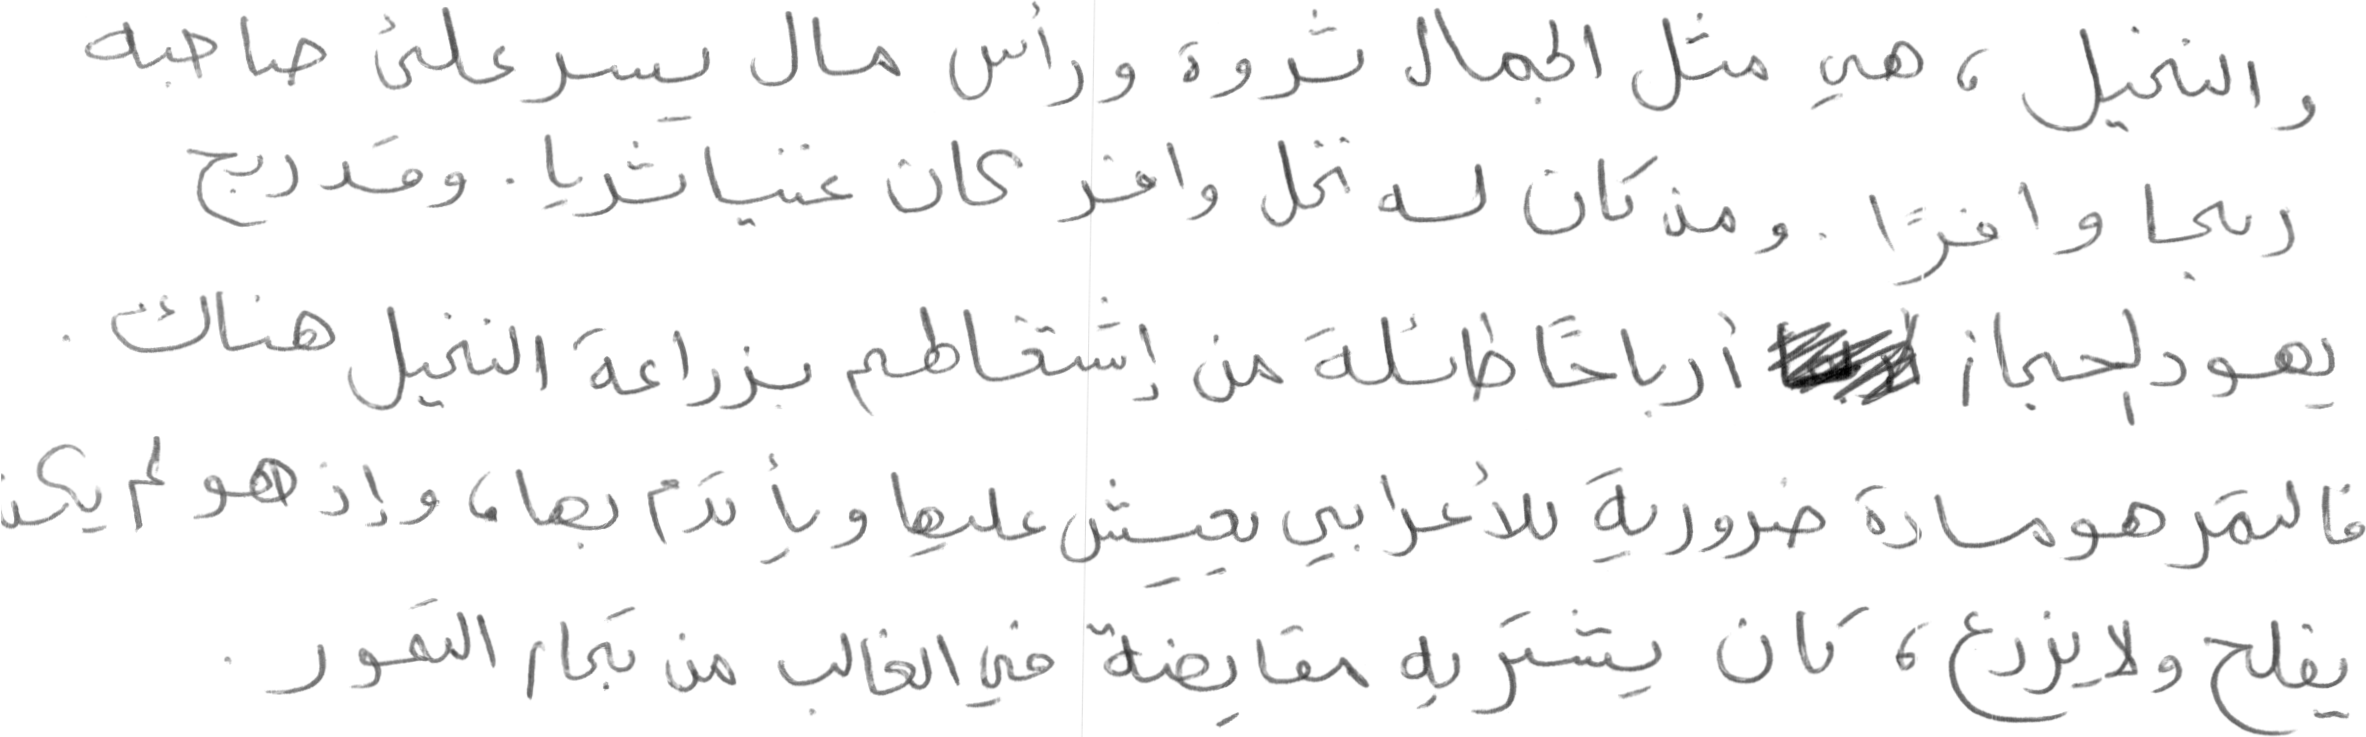 والنخيل، هي مثل الجمال ثروة ورأس مال يسر على صاحبه
ربحا وافرًا. ومن كان له نخل وافر كان غنيا ثريا. وقد ربح
يهود الحجاز أرباحًا طائلة من إشتغاطهم بزراعة النخيل هناك.
فالتمر هو مادة ضرورية للأعرابي يعيش عليها ويأتدم بها، وإذ هو لم يكن
يفلح ولا يزرع، كان يشتريه مقايضة في الغالب من تجار التمور.